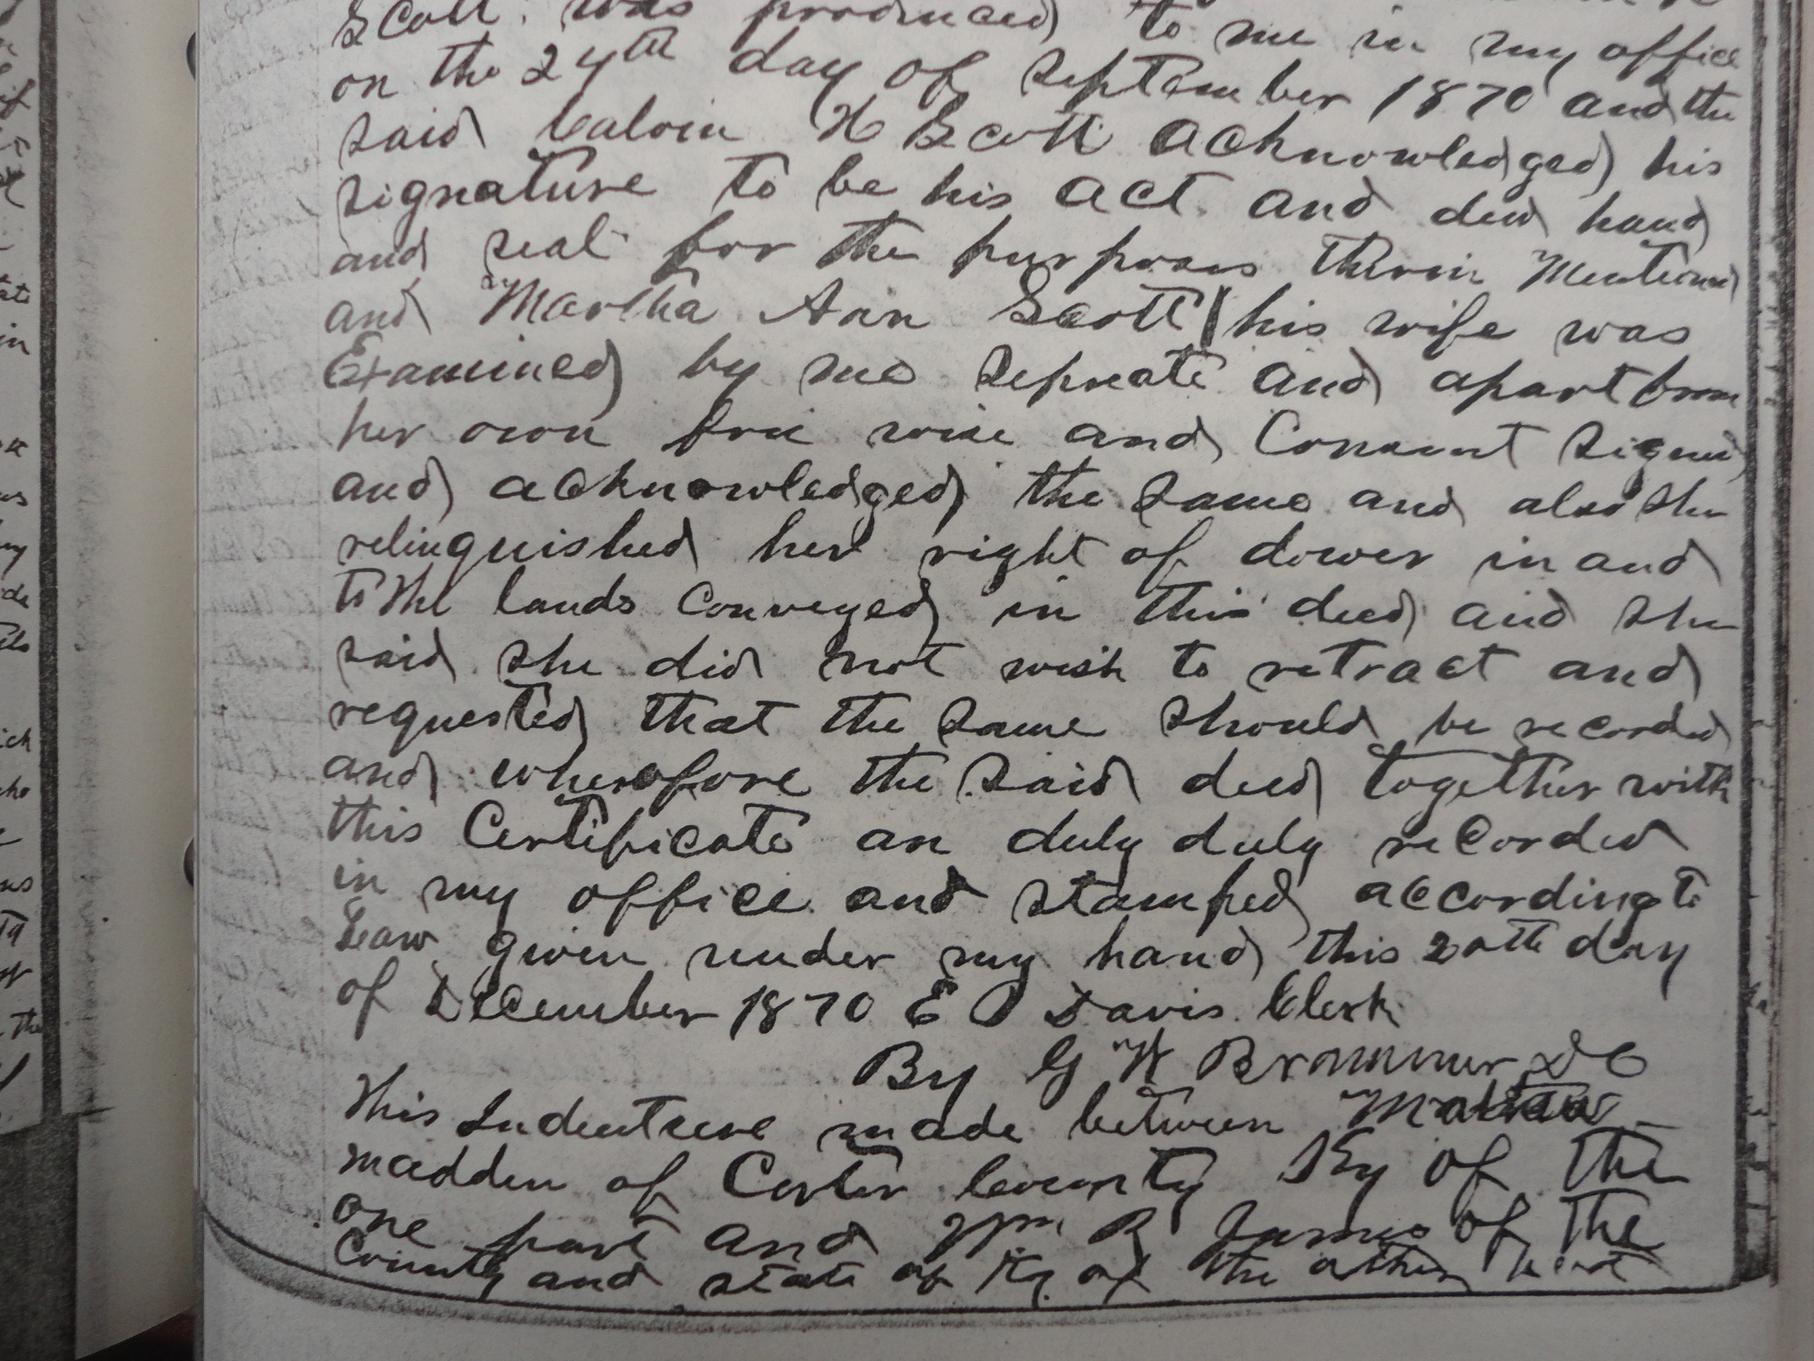 Scott. was produced to me in my office
on the 24th day of September 1870 and the
said Calvin H Scott acknowledged his
signature to be his act and deed hand
and seal for the purposes therein Mentioned
and Martha Ann Scott his wife was
Examined by me seprate and apart from
her own free wise and Consent signed
and acknowledged the same and also she
relinquished her right of dower in and
to the lands conveyed in this deed and she
said she did not wish to retract and
requested that the same should be recorded
and wherefore the said deed together with
this Certificate an duly duly recorded
in my office and stamped according to
Law given under my hand this 20th day
of December 1870 E D Davis Clerk
By G W Brammer DC
This Indenture made between
madden of Carter County Ky of the
one part and Wm R James of the
County and state of Ky of the other part